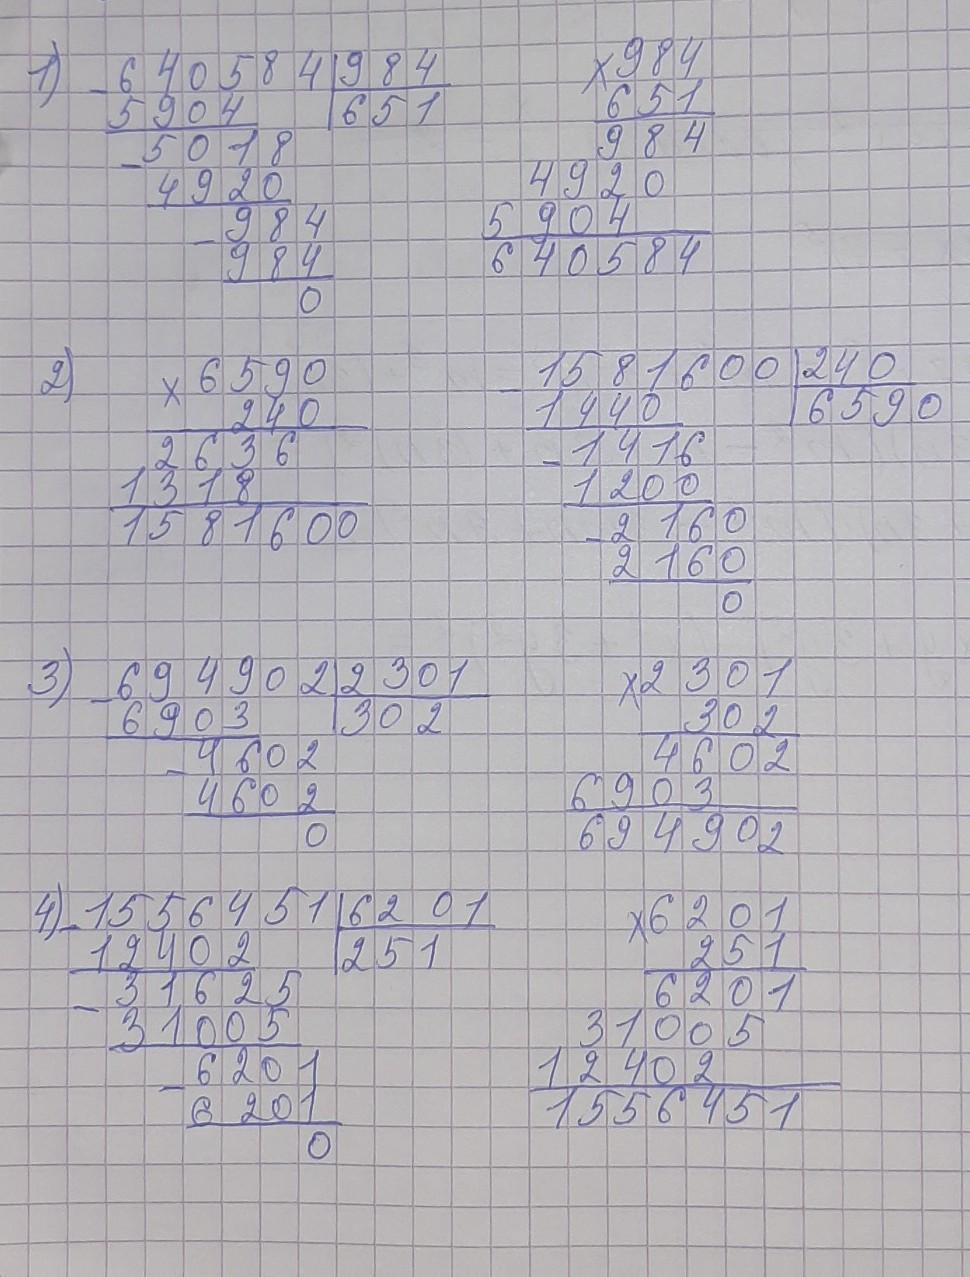 1) - 640584 | 984     x 984
5904 | 651     651
- 5018     984
4920     4920
- 984     5904
984     640584
0
2) x 6590     - 1581600 | 240
240     1440 | 6590
2636     - 1416
1318     1200
1581600     - 2160
2160
0
3) - 694902 | 2301     x 2301
6903 | 302     302
- 4602     4602
4602     6903
0     694902
4) - 1556451 | 6201     x 6201
12402 | 251     251
- 31625     6201
31005     31005
- 6201     12402
6201     1556451
0